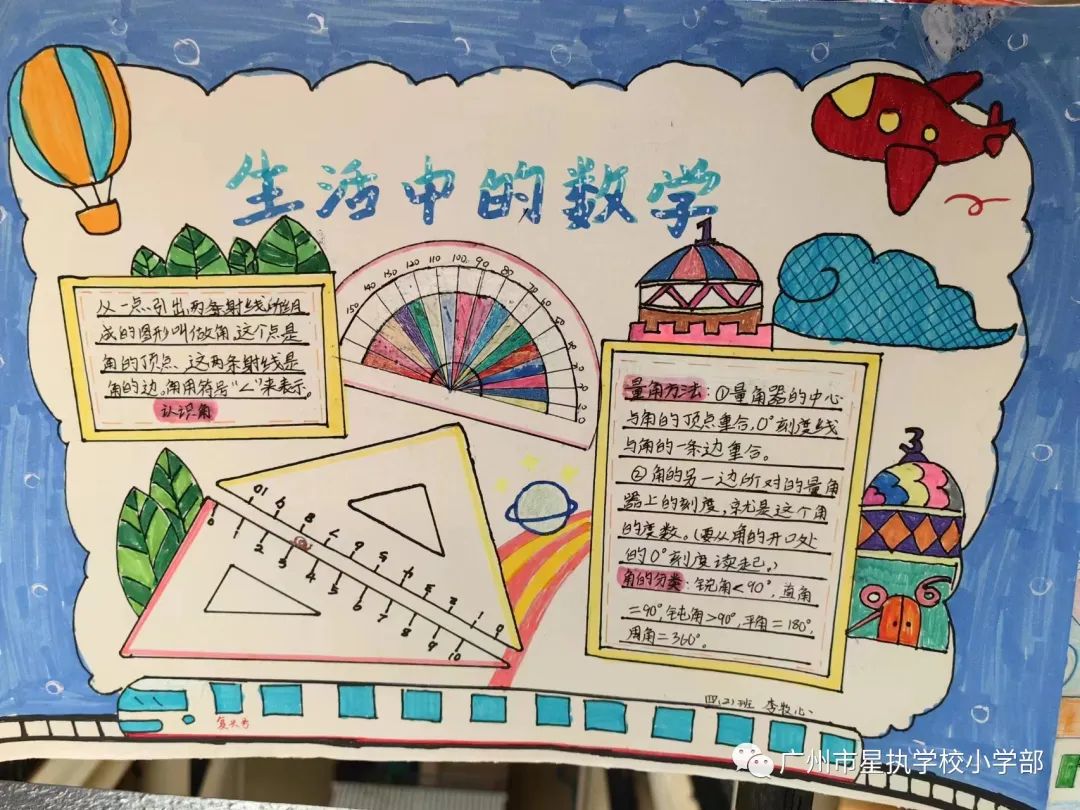 生活中的数学
从一点引出两条射线所组
成的图形叫做角,这个点是
角的顶点,这两条射线是
角的边。角用符号"∠"来表示。
认识角
150 140 130 120 110 100 90 80 70 60 50 40 30 20 10 0
1
量角方法:①量角器的中心
与角的顶点重合,0°刻度线
与角的一条边重合。
②角的另一边所对的量角
器上的刻度,就是这个角
的度数。(要从角的开口处
的0°刻度读起。)
角的分类:锐角<90°,直角
=90°,钝角>90°,平角=180°,
周角=360°。
3
6
10 9 8 7 6 5 4 3 2 1 0
0 1 2 3 4 5 6 7 8 9 10
复兴号
四(2)班 李牧心
广州市星执学校小学部